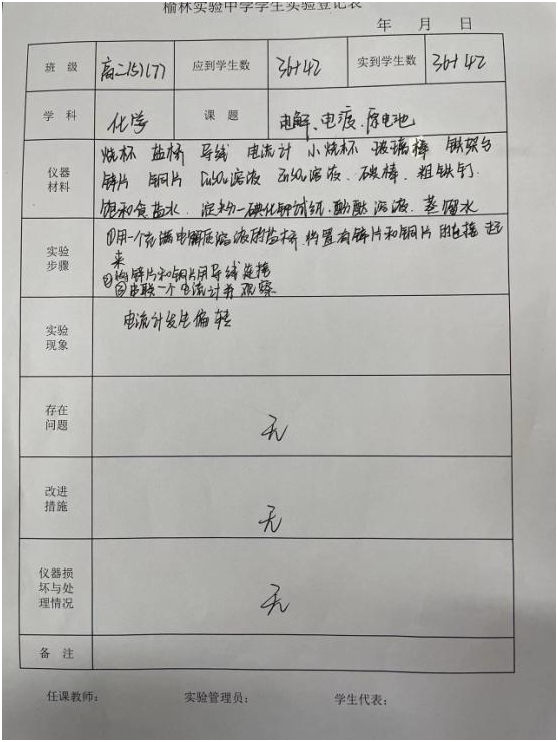 榆林实验中学学生实验登记表
年 月 日
班 级 高二(5)(7) 应到学生数 36+42 实到学生数 36+42
学 科 化学 课 题 电解、电渡、原电池
仪器材料 烧杯 盐桥 导线 电流计 小烧杯 玻璃棒 铁架台
锌片 铜片 CuSO₄溶液 ZnSO₄溶液、碳棒、粗铁钉
饱和食盐水、淀粉一碘化钾试纸、酚酞溶液、蒸馏水
实验步骤 ①用一个充满电解质溶液的盐桥,将置有锌片和铜片的连接起
来
②将锌片和铜片用导线连接
③串联一个电流计并观察
实验现象 电流计发生偏转
存在问题 无
改进措施 无
仪器损坏与处理情况 无
备 注
任课教师: 实验管理员: 学生代表: